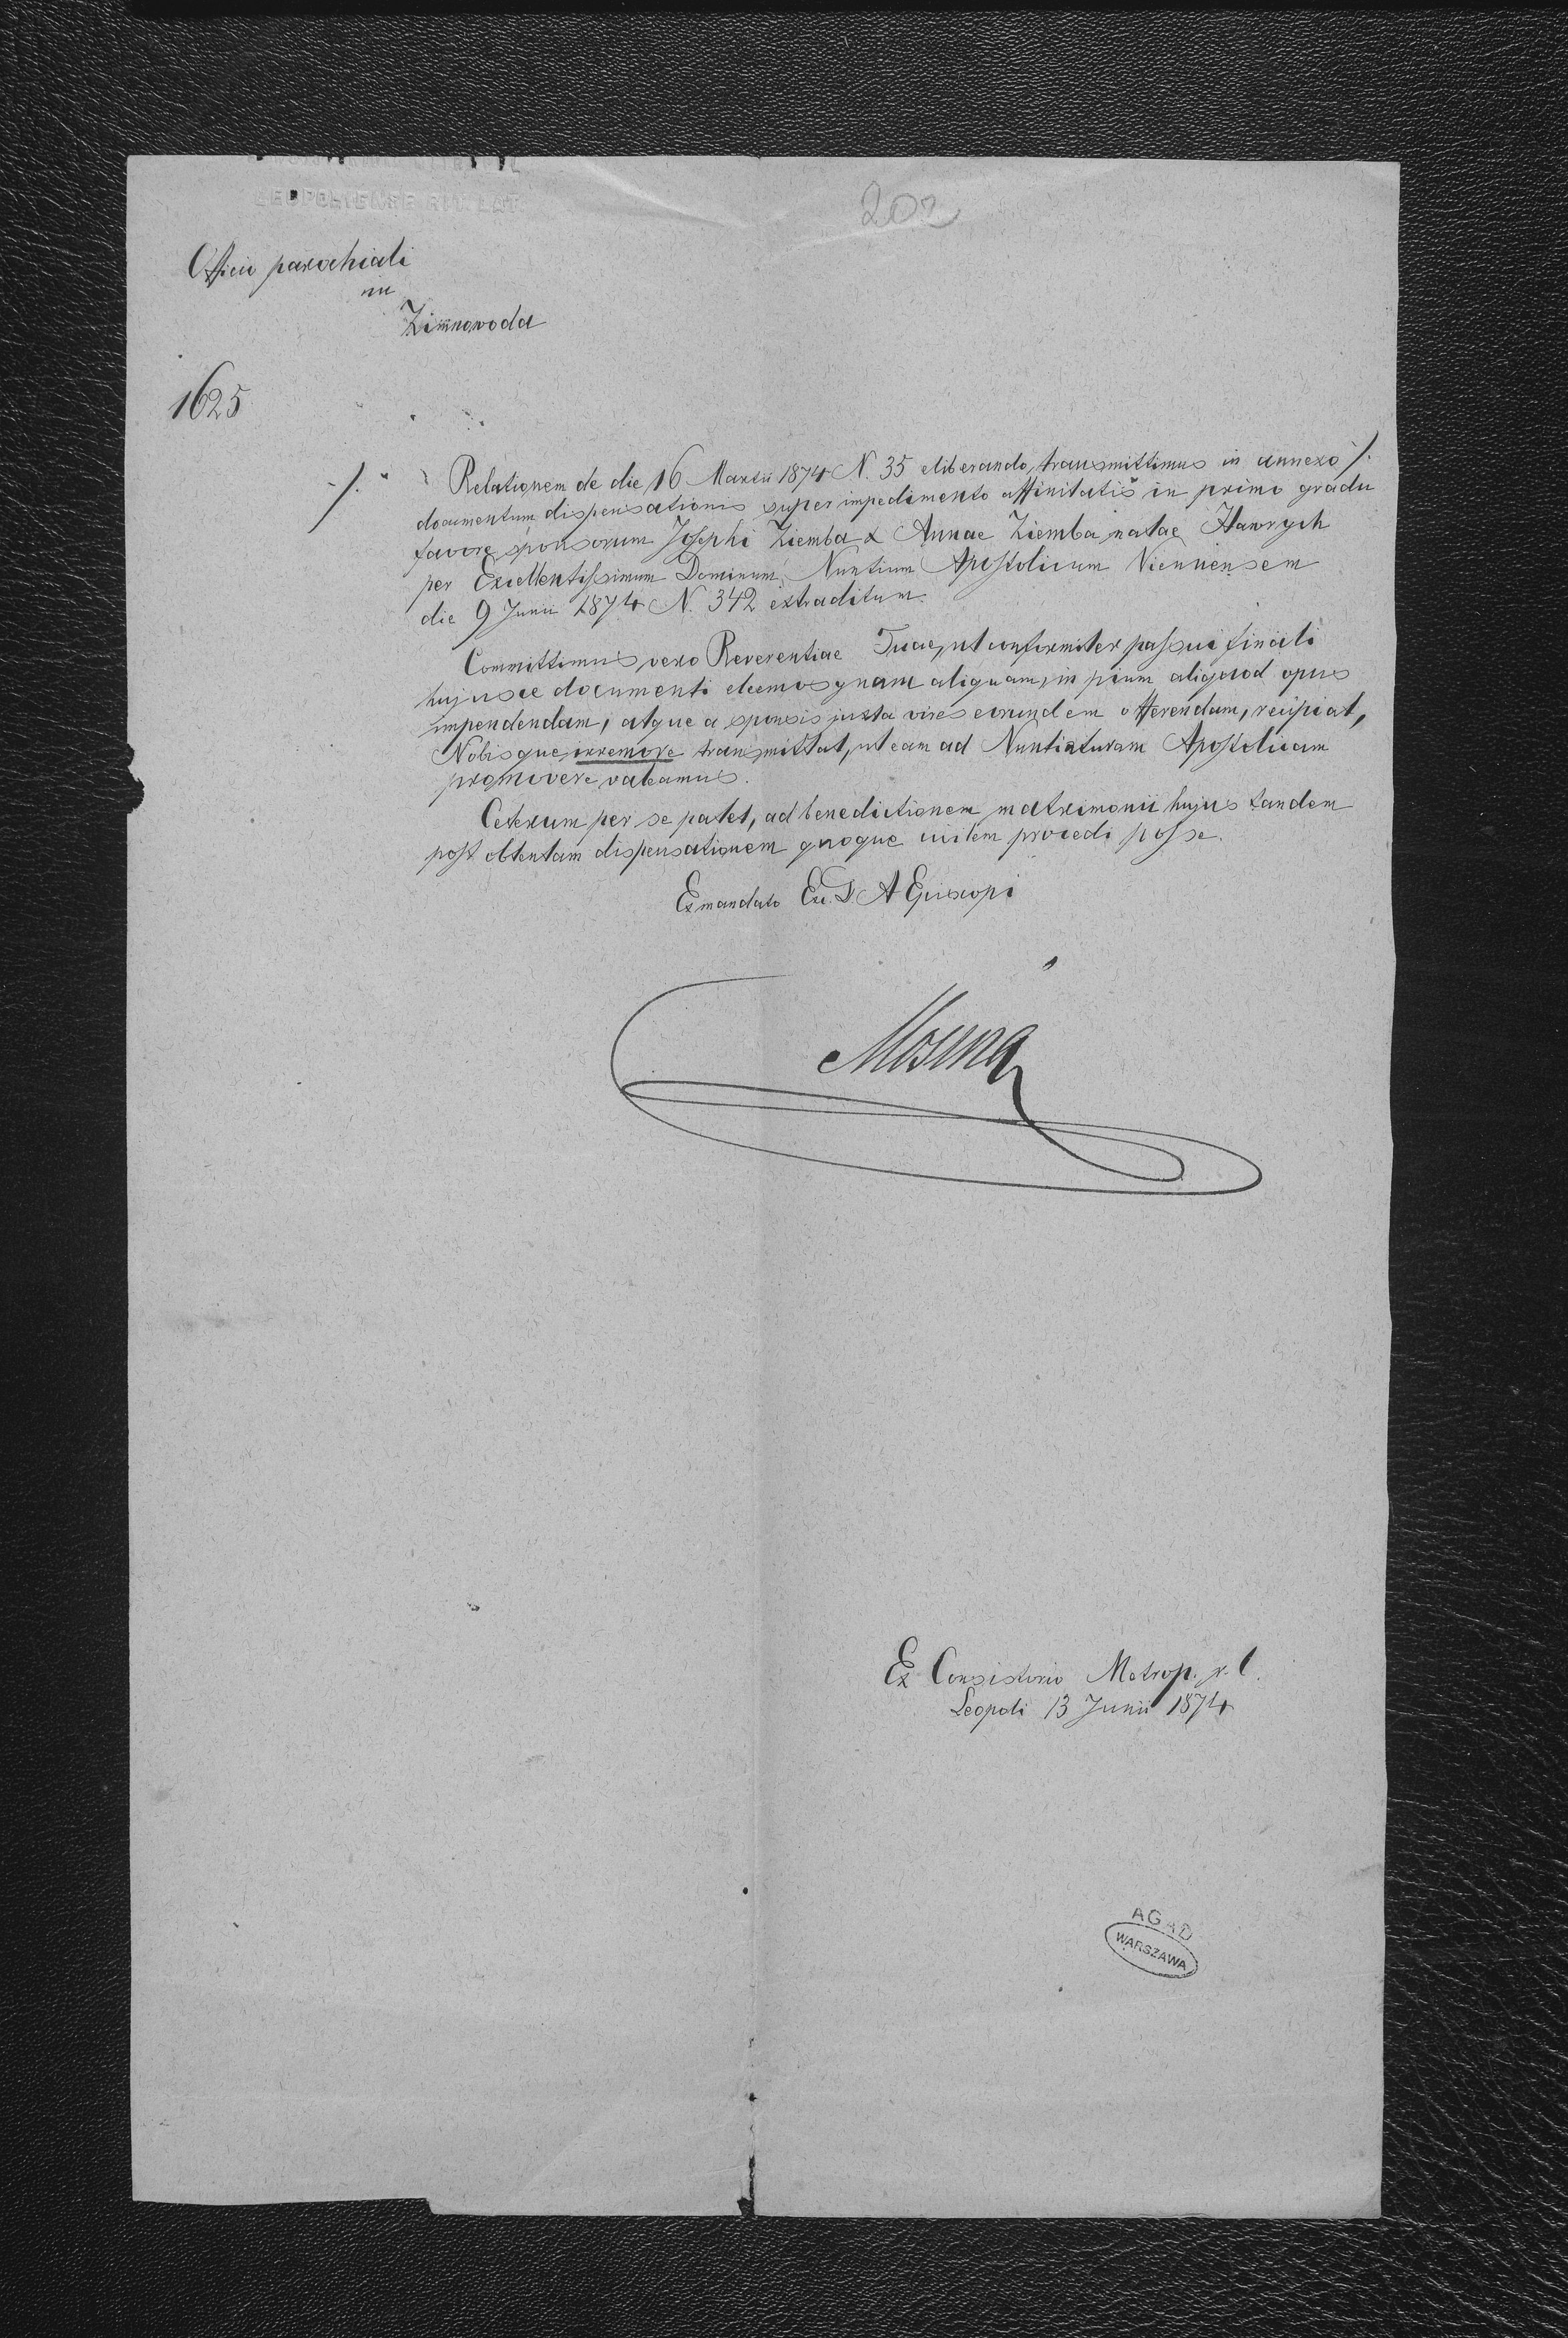 LEOPOLIENSE RIT. LAT.
202
Officio parochiali
in
Zimnawoda
1625
Relationem de die 16 Martii 1874 N. 35 eliberando, transmittimus in annexo ·/.
·/. documentum dispensationis super impedimento affinitatis in primo gradu
favore sponsorum Josephi Ziemba & Annae Ziemba natae Hawrych
per Excellentissimum Dominum Nuntium Apostolicum Viennensem
die 9 Junii 1874 N. 342 extraditum.
Committimus vero Reverentiae Tuae, ut conformiter passui finali
hujusce documenti eleemosynam aliquam, in pium aliquod opus
impendendam, atque a sponsis juxta vires eorundem offerendam, recipiat,
Nobisque irremore transmittat, ut eam ad Nuntiaturam Apostolicam
promovere valeamus.
Ceterum per se patet, ad benedictionem matrimonii hujus tandem
post obtentam dispensationem quoque civilem procedi posse.
Ex mandato Exc. D. AEpiscopi
Ex Consistorio Metrop. r. l.
Leopoli 13 Junii 1874
AGAD
WARSZAWA